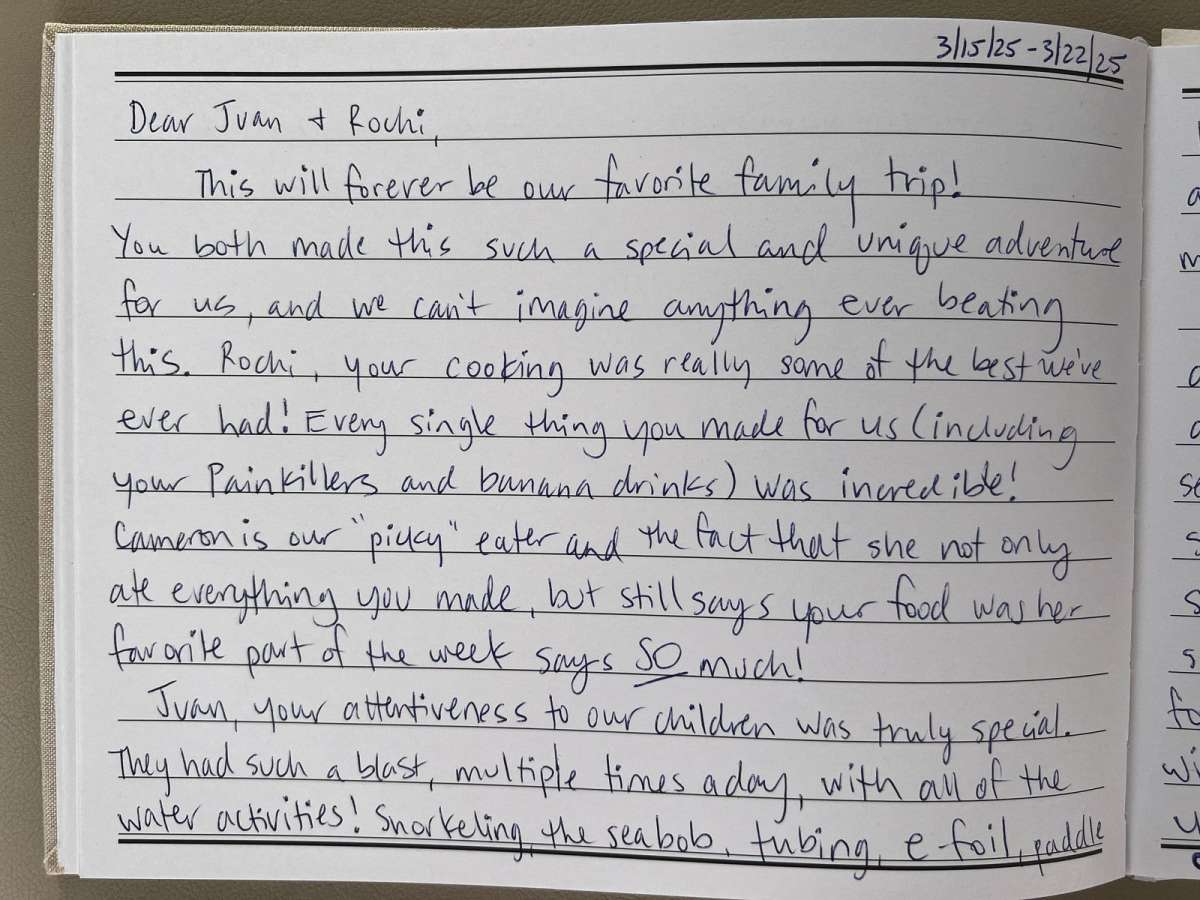 3/15/25 - 3/22/25
Dear Juan + Rochi,
This will forever be our favorite family trip!
You both made this such a special and unique adventure
for us, and we can't imagine anything ever beating
this. Rochi, your cooking was really some of the best we've
ever had! Every single thing you made for us (including
your Painkillers and banana drinks) was incredible!
Cameron is our "picky" eater and the fact that she not only
ate everything you made, but still says your food was her
favorite part of the week says SO much!
Juan, your attentiveness to our children was truly special.
They had such a blast, multiple times a day, with all of the
water activities! Snorkeling, the seabob, tubing, e foil, paddle